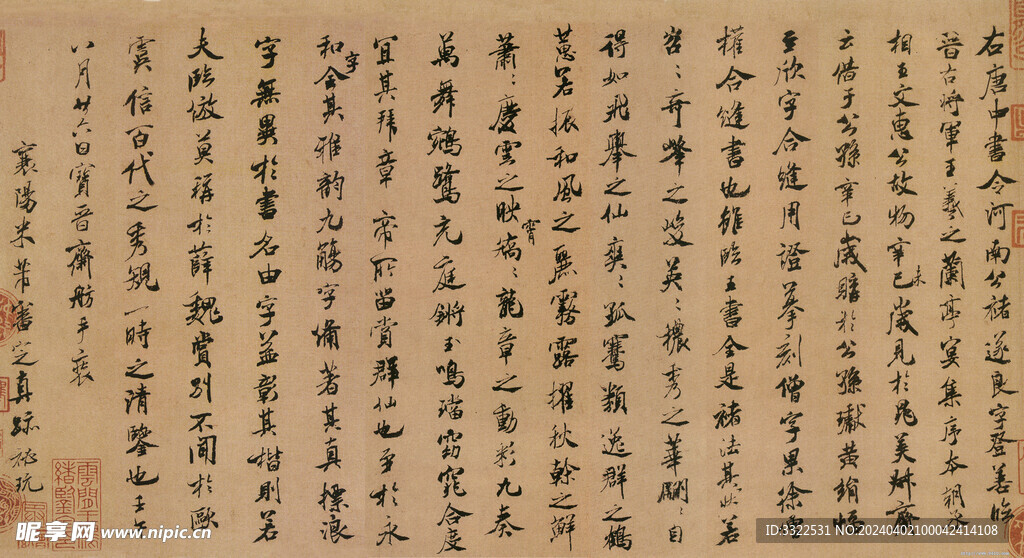 右唐中書令河南公褚遂良字登善臨
晉右將軍王羲之蘭亭宴集序本朝丞
相王文惠公故物辛巳未歲見於晁美叔齋
云借于公孫辛巳歲購於公孫瓛黃絹幅
至欣字合縫用證摹刻僧字果徐僧
權合縫書也雖臨王書全是褚法其狀若
岩〻奇峰之峻英〻穠秀之華翩〻自
得如飛舉之仙爽〻孤騫類逸群之鶴
蕙若振和風之麗霧露擢秋幹之鮮
蕭〻慶雲之映霄矯〻龍章之動彩九奏
萬舞鵷鷺充庭鏘玉鳴璫窈窕合度
宜其拜章帝所留賞群仙也至於永
和字全其雅韵九觴字備著其真標浪
字無異於書名由字益彰其楷則若
夫臨倣莫稱於薛魏賞別不聞於歐
虞信百代之秀規一時之清鑒也壬午
八月廿六日寶晉齋舫手裝
襄陽米芾審定真跡秘玩
昵享网 www.nipic.cn
ID:3322531 NO:20240402100042414108